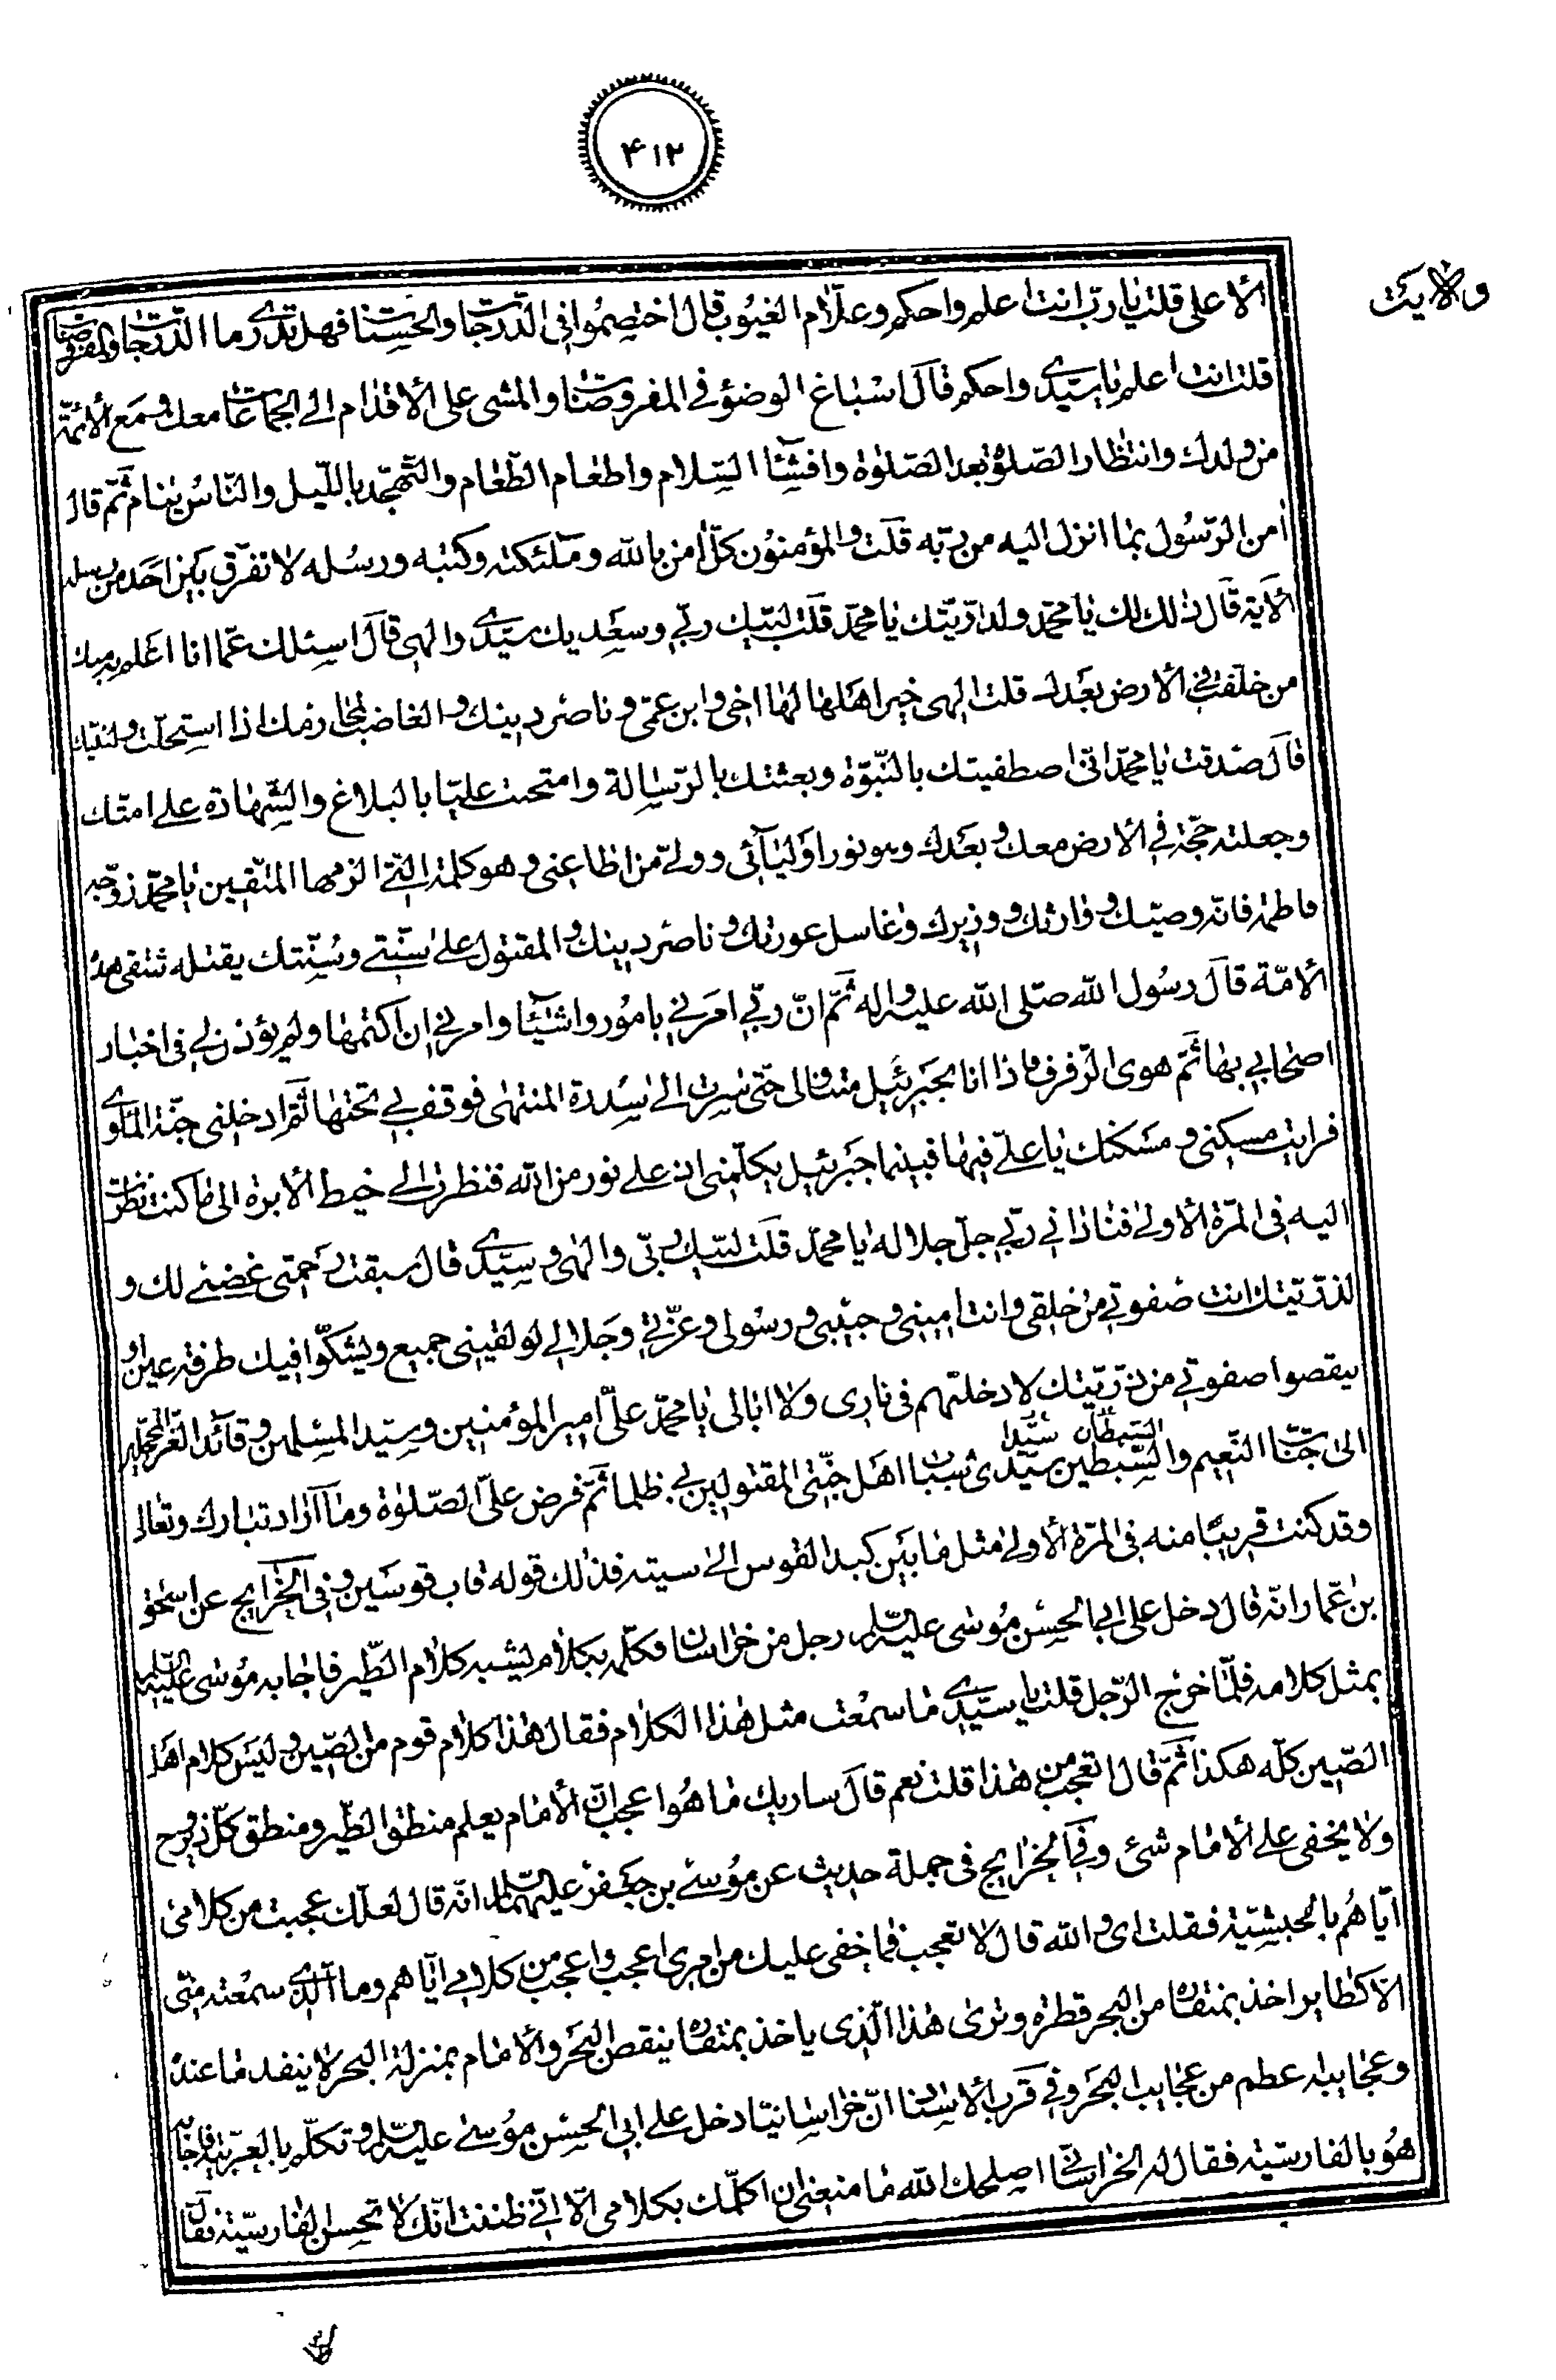 ۴۱۲
ولایت
الاعلى قلت يا رب انت اعلم واحكم وعلّام الغيوب قال اختصموا فى الدّرجات والحسنات فهل تدرى ما الدّرجات والمفروضات
قلت انت اعلم يا سيّدى واحكم قال اسباغ الوضوء فى المفروضات والمشى على الاقدام الى الجماعات معك ومع الأئمّة
من ولدك وانتظار الصّلوة بعد الصّلوة وافشاء السّلام واطعام الطّعام والتّهجّد باللّيل والنّاس نيام ثمّ قال
امن الرّسول بما انزل اليه من ربّه قلت والمؤمنون كلّ امن بالله وملئكته وكتبه ورسله لا نفرّق بين احد من رسله
الآية قال ذلك لك يا محمّد ولذرّيّتك يا محمّد قلت لبّيك ربّى وسعديك سيّدى والهى قال اسئلك عمّا انا اعلم به منك
من خلّفت فى الارض بعدك قلت الهى خير اهلها لها اخى وابن عمّى وناصر دينك والغاضب لمحارمك اذا استحلّت ولنبيّك
قال صدقت يا محمّد انّى اصطفيتك بالنّبوّة وبعثتك بالرّسالة وامتحنت عليّا بالبلاغ والشّهادة على امّتك
وجعلته حجّة فى الارض معك وبعدك وهو نور اوليائى وولىّ من اطاعنى وهو كلمة الّتى الزمها المتّقين يا محمّد زوّجه
فاطمة فانّه وصيّك ووارثك ووزيرك وغاسل عورتك وناصر دينك والمقتول على سنّتى وسنّتك يقتله شقى هذه
الامّة قال رسول الله صلّى الله عليه واله ثمّ انّ ربّى امرنى بامور واشياء وامرنى ان اكتمها ولم يؤذن لى فى اخبار
اصحابى بها ثمّ هوى الرّفرف فاذا انا بجبرئيل فتناولنى حتّى سرت الى سدرة المنتهى فوقف بى تحتها ثمّ ادخلنى جنّة المأوى
فرايت مسكنى ومسكنك يا علىّ فيها فبينما جبرئيل يكلّمنى اذ على نور من الله فنظرت الى خيط الابرة الى ما كنت نظرت
اليه فى المرّة الاولى فنادانى ربّى جلّ جلاله يا محمّد قلت لبّيك ربّى والهى وسيّدى قال سبقت رحمتى غضبى لك و
لذرّيّتك انت صفوتى من خلقى وانت امينى وحبيبى ورسولى وعزّتى وجلالى لو لقينى جميع ويشكّوا فيك طرفة عين او
ينقصوا صفوتى من ذرّيّتك لادخلتهم فى نارى ولا ابالى يا محمّد علىّ امير المؤمنين وسيّد المسلمين وقائد الغرّ المحجّلين
السّبطان سيّدا
الى جنّات النّعيم والسّبطين سيّدى شباب اهل جنّتى المقتولين بى ظلما ثمّ فرض علىّ الصّلوة وما اراد تبارك وتعالى
وقد كنت قريبا منه فى المرّة الاولى مثل ما بين كبد القوس الى سيته فذلك قوله قاب قوسين وفى الخرايج عن اسحق
بن عمّار انّه قال دخل على ابى الحسن موسى عليه السلام رجل من خراسان فكلّمه بكلام يشبه كلام الطّير فاجابه موسى عليه السلام
بمثل كلامه فلمّا خرج الرّجل قلت يا سيّدى ما سمعت مثل هذا الكلام فقال هذا كلام قوم من الصّين وليس كلام اهل
الصّين كلّه هكذا ثمّ قال اتعجب من هذا قلت نعم قال ساريك ما هو اعجب انّ الامام يعلم منطق الطّير ومنطق كلّ ذى روح
ولا يخفى على الامام شئ وفى الخرايج فى جملة حديث عن موسى بن جعفر عليهما السلام انّه قال لعلّك عجبت من كلامى
ايّاهم بالحبشيّة فقلت اى والله قال لا تعجب فما خفى عليك من امرى اعجب واعجب من كلامى ايّاهم وما الّذى سمعته منّى
الّا كطاير اخذ بمنقاره من البحر قطرة وترى هذا الّذى ياخذ بمنقاره ينقص البحر والامام بمنزلة البحر لا ينفد ما عنده
وعجايبه اعظم من عجايب البحر وفى قرب الاسناد انّ خراسانيّا دخل على ابى الحسن موسى عليه السلام وتكلّم بالعربيّة فاجابه
هو بالفارسيّة فقال له الخراسانى اصلحك الله ما منعنى ان اكلّمك بكلامى الّا انّى ظننت انّك لا تحسن الفارسيّة فقال